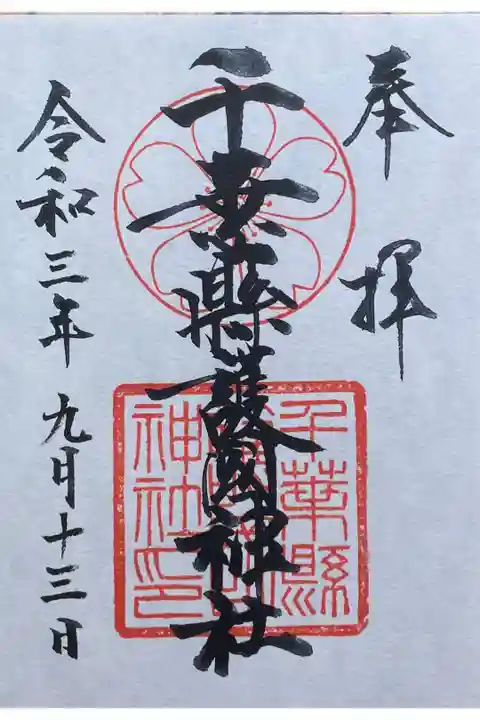 奉拝
千葉縣護國神社
千葉縣
護國
神社印
令和三年 九月十三日